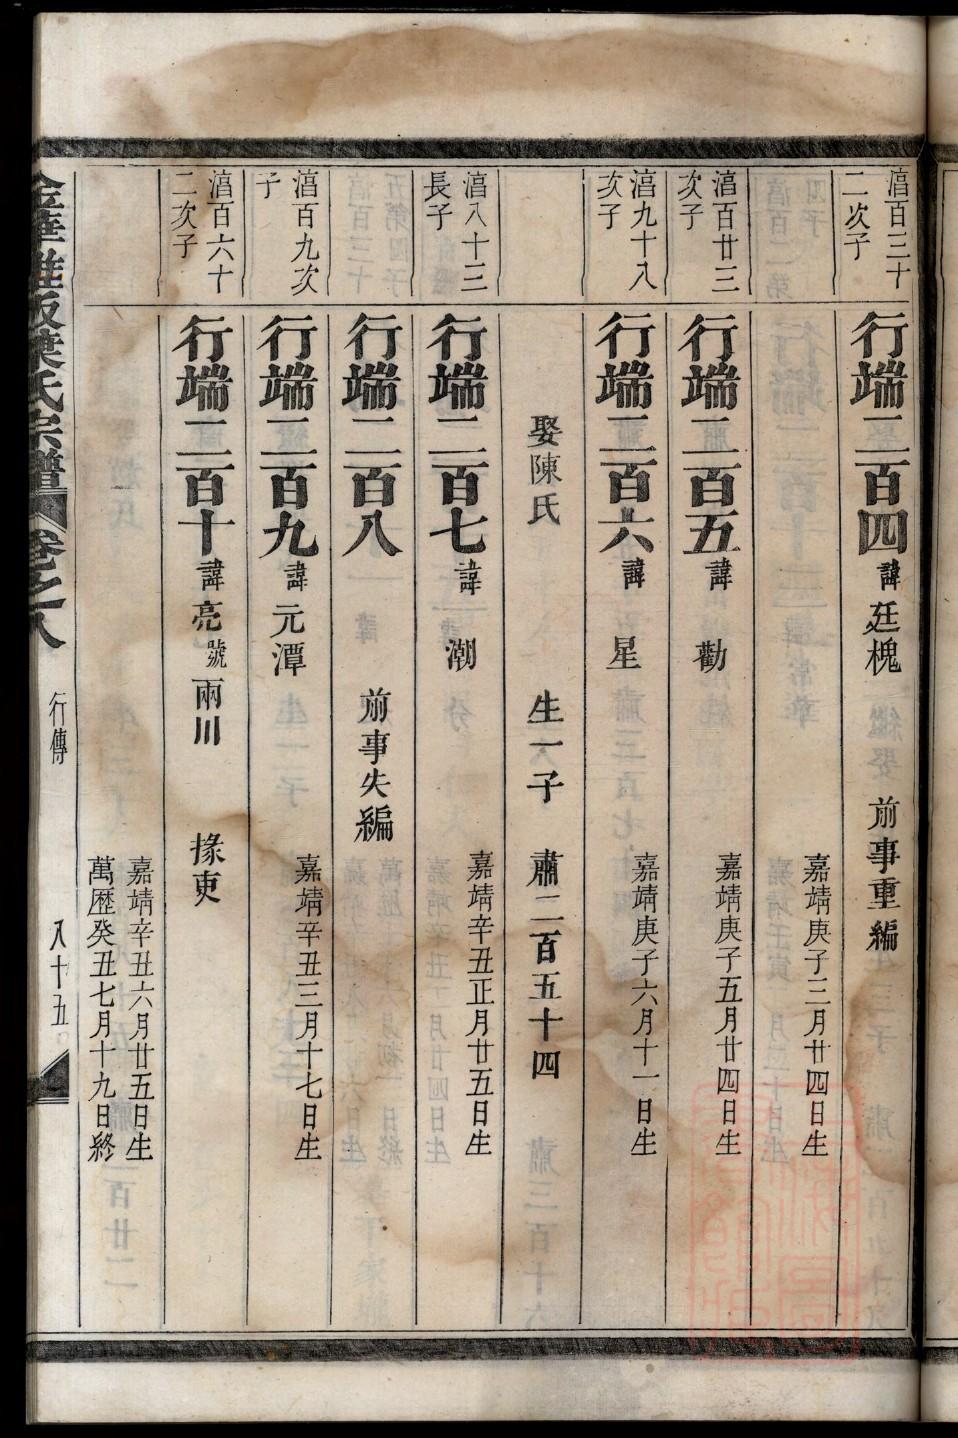 湻百三十
二次子
行端二百四諱廷槐 前事重編
嘉靖庚子三月廿四日生
湻百廿三
次子
行端二百五諱勸
嘉靖庚子五月廿四日生
湻九十八
次子
行端二百六諱星
嘉靖庚子六月十一日生
娶陳氏 生一子 肅二百五十四
湻八十三
長子
行端二百七諱潮
嘉靖辛丑正月廿五日生
行端二百八 前事失編
湻百九次
子
行端二百九諱元潭
嘉靖辛丑三月十七日生
湻百六十
二次子
行端二百十諱亮號兩川 掾吏
嘉靖辛丑六月廿五日生
萬歷癸丑七月十九日終
葉氏宗譜 卷之八 行傳 八十五